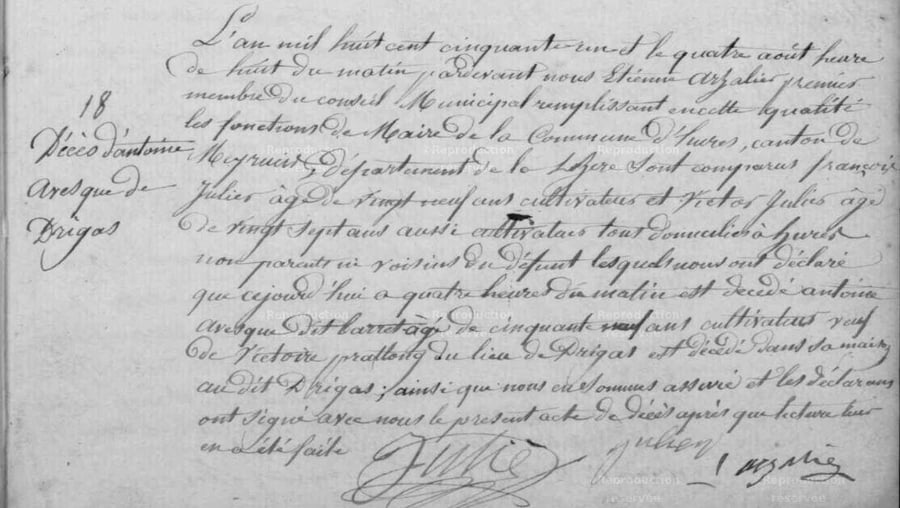 L'an mil huit cent cinquante-un et le quatre août heure
de huit du matin pardevant nous Etienne arzalier premier
membre du conseil Municipal remplissant en cette qualité
les fonctions de Maire de la Commune d'hures, canton de
18
Décès d'antoine
avesque de
Drigas
Meyrueis, département de la Lozere Sont comparus françois
Julier âgé de vingt neuf ans cultivateur et Victor Julier âgé
de vingt sept ans aussi cultivateur tous domiciliés à hures
non parents ni voisins du défunt lesquels nous ont déclaré
que cejourd'hui a quatre heures du matin est decédé antoine
avesque dit barret âgé de cinquante ans cultivateur veuf
de Victoire pratlong du lieu de Drigas est décédé dans sa maison
au dit Drigas ; ainsi que nous en Sommes assuré et les déclarans
ont signé avec nous le present acte de décès après que lecture leur
en a été faite
Julier
arzalier
Reproduction
réservée